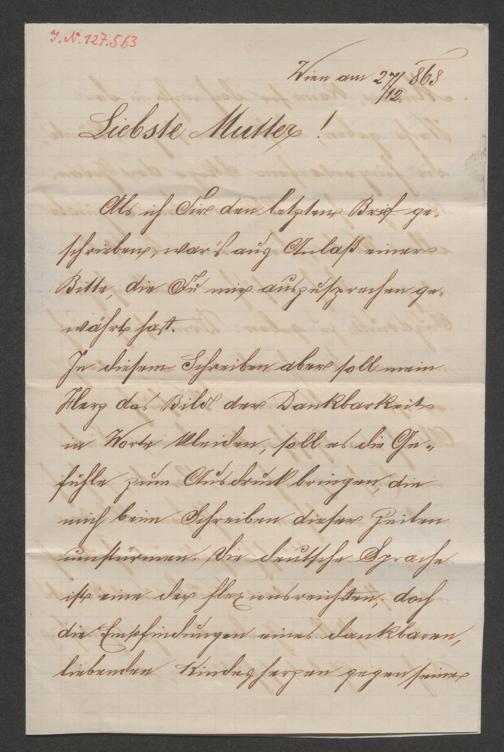 J. N. 127.563
Wien am 27/12. 868
Liebste Mutter!
Als ich Dir den letzten Brief ge-
schrieben, war's aus Anlaß einer
Bitte, die Du mir auszusprechen ge-
währt hast.
In diesem Schreiben aber soll mein
Herz das Bild der Dankbarkeit
in Worte kleiden, soll es die Ge-
fühle zum Ausdruck bringen, die
mich beim Schreiben dieser Zeilen
umstürmen. Die deutsche Sprache
ist eine der, doch
die Empfindungen eines dankbaren,
liebenden Kindesherzen gegen seine